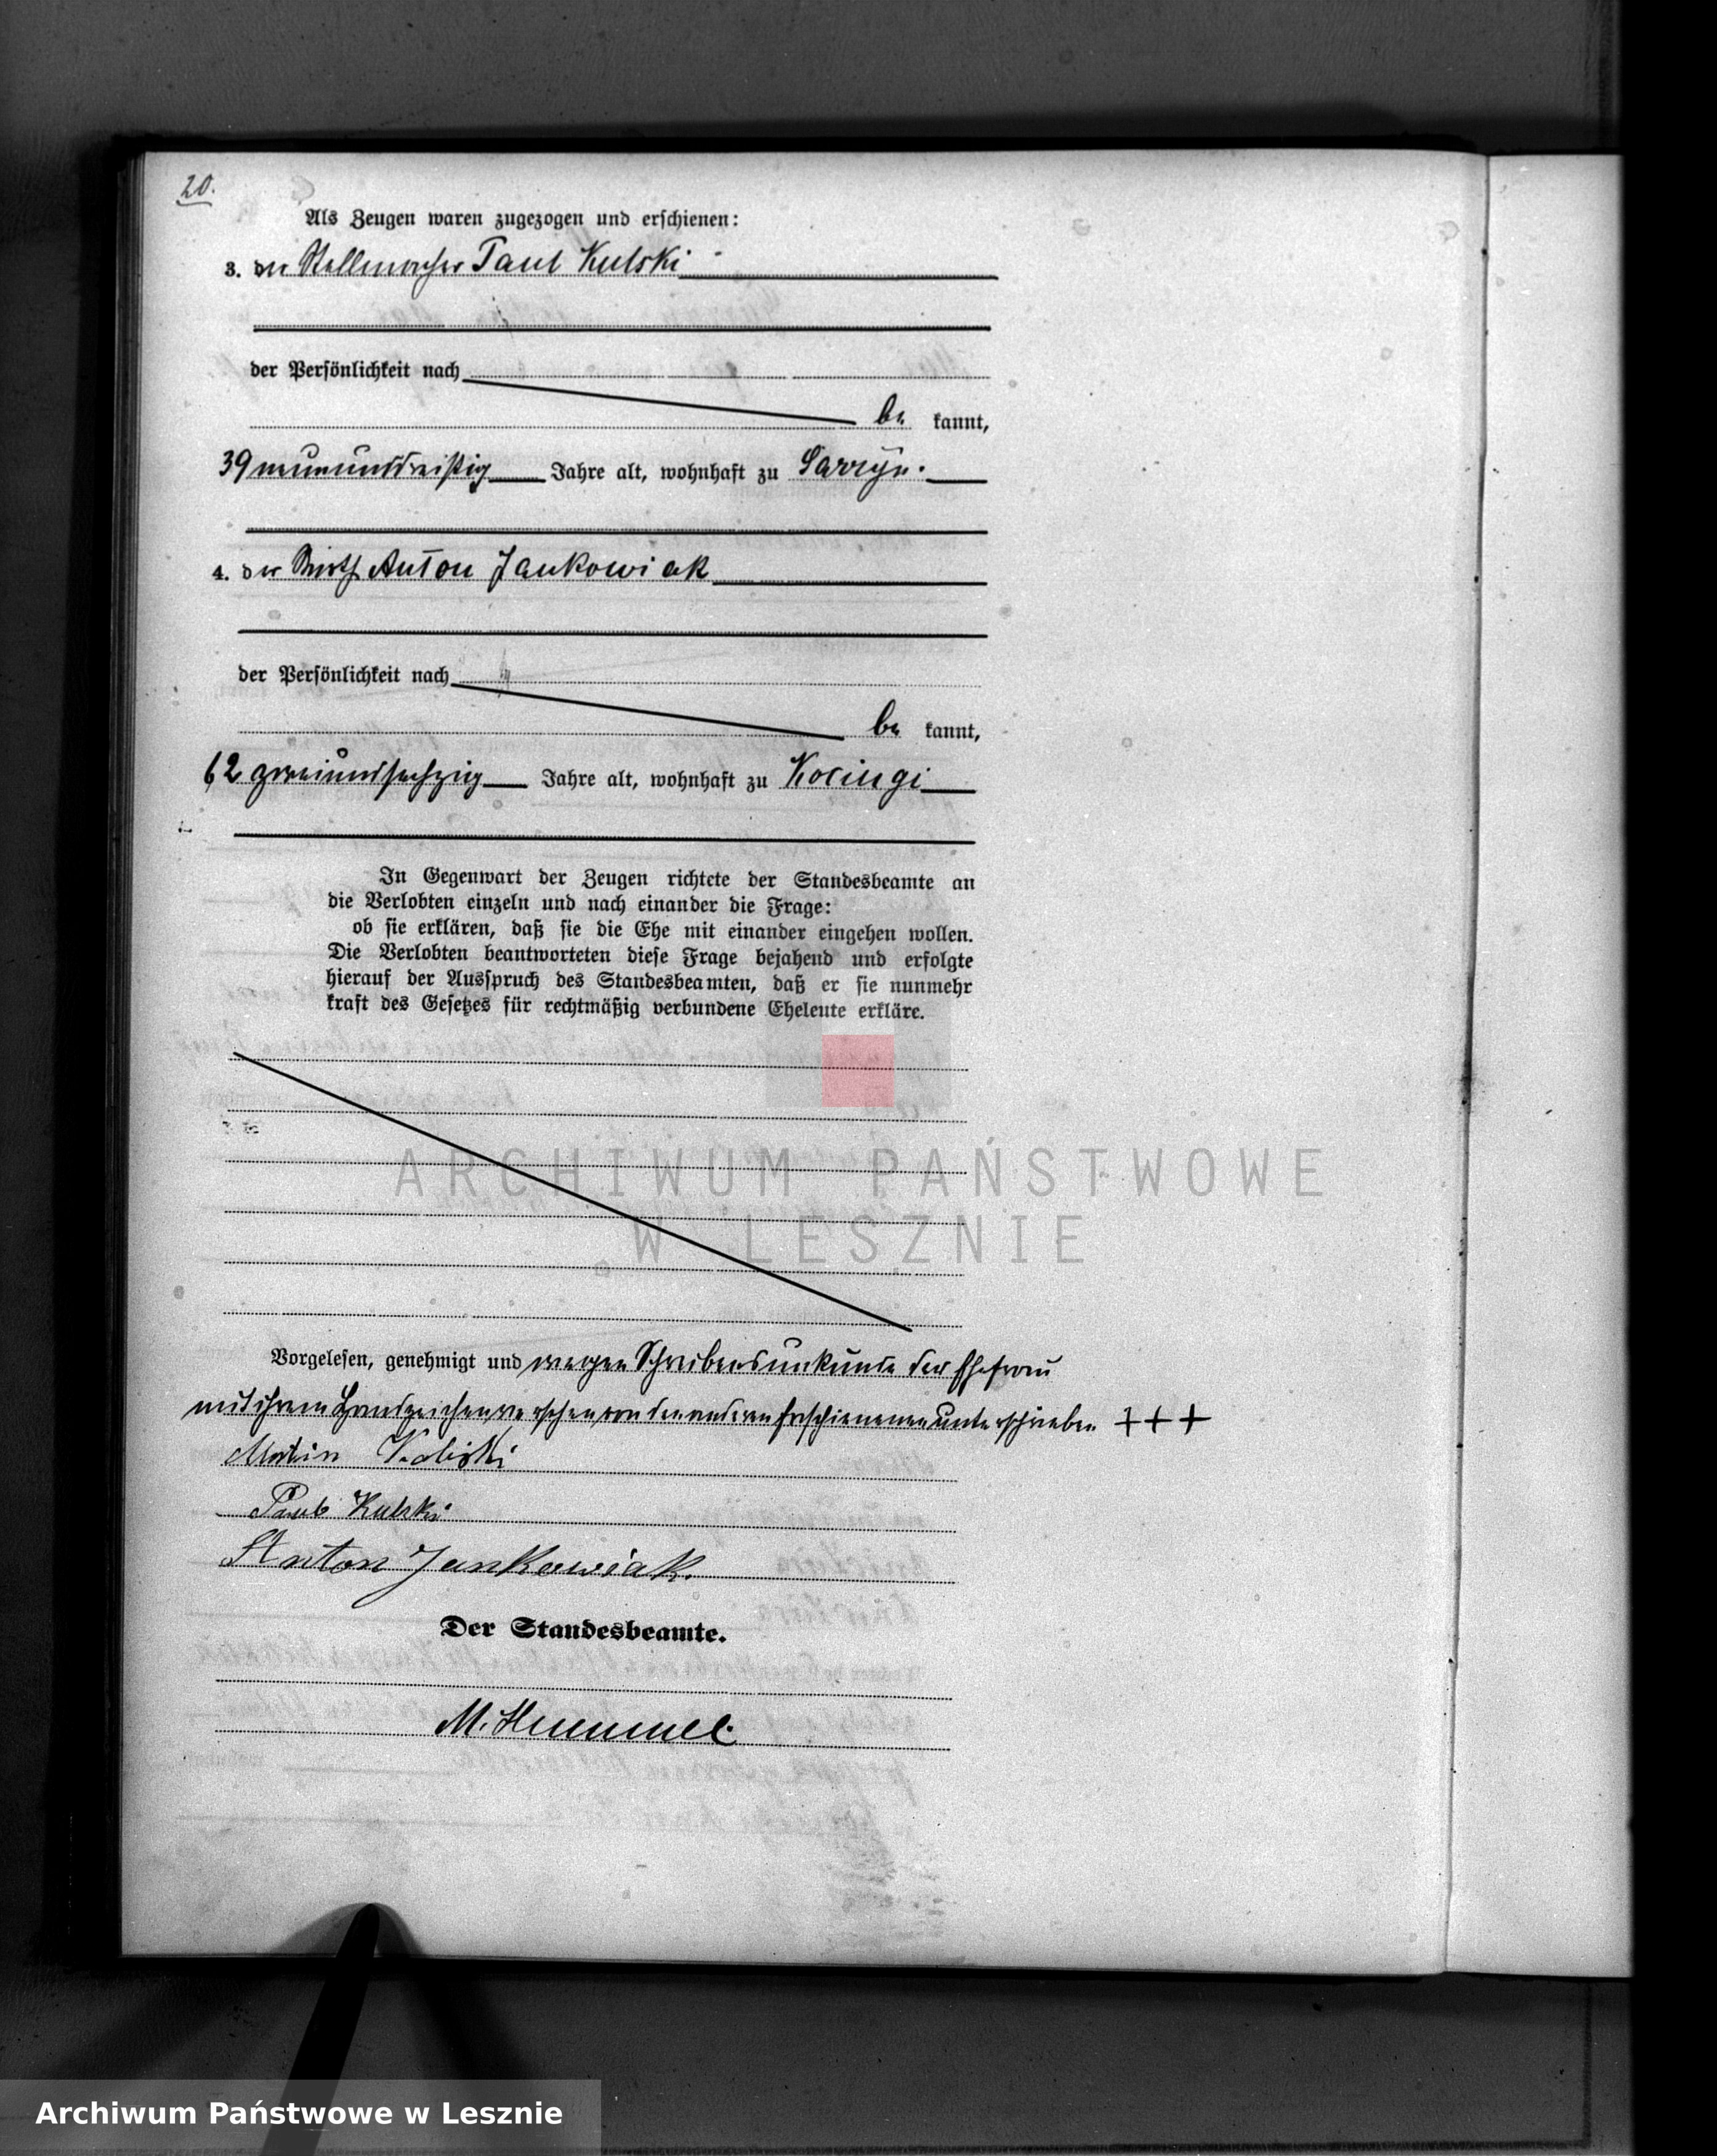 20.
Als Zeugen waren zugezogen und erschienen:
3. der Stellmacher Paul Kulski
der Persönlichkeit nach
be kannt,
39 neununddreißig Jahre alt, wohnhaft zu
4. der Wirth Anton Jankowiak
der Persönlichkeit nach
be kannt,
62 zweiundsechzig Jahre alt, wohnhaft zu Kocingi
In Gegenwart der Zeugen richtete der Standesbeamte an
die Verlobten einzeln und nach einander die Frage:
ob sie erklären, daß sie die Ehe mit einander eingehen wollen.
Die Verlobten beantworteten diese Frage bejahend und erfolgte
hierauf der Ausspruch des Standesbeamten, daß er sie nunmehr
kraft des Gesetzes für rechtmäßig verbundene Eheleute erkläre.
ARCHIWUM PAŃSTWOWE
W LESZNIE
Vorgelesen, genehmigt und wegen Schreibensunkunde der Ehefrau
mit ihrem Handzeichen versehen von den anderen Erschienenen unterschrieben +++
Martin
Paul Kulski
Anton Jankowiak.
Der Standesbeamte.
M. Hummel.
Archiwum Państwowe w Lesznie